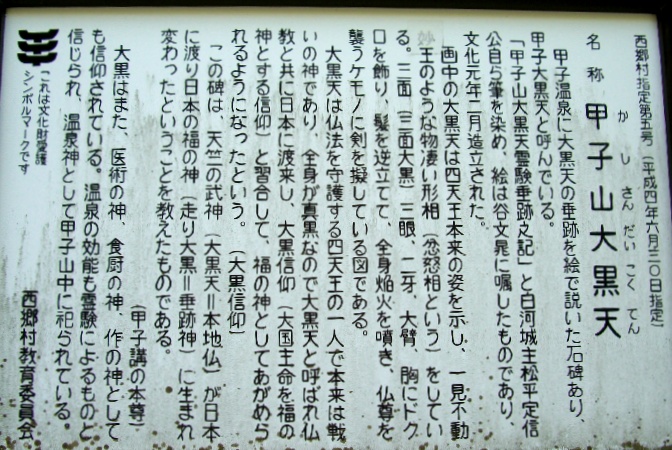 西郷村指定第五号（平成四年六月三〇日指定）
名称 甲子山大黒天
かしさんだいこくてん
甲子温泉に大黒天の垂跡を絵で説いた石碑あり、
甲子大黒天と呼んでいる。
「甲子山大黒天霊験垂跡之記」と白河城主松平定信
公自ら筆を染め、絵は谷文晁に嘱したものであり、
文化元年二月造立された。
画中の大黒天は四天王本来の姿を示し、一見不動
王のような物凄い形相（忿怒相という）をしてい
る。三面（三面大黒）三眼、二牙、大臂、胸にドク
口を飾り、髪を逆立てて、全身焔火を噴き、仏尊を
襲うケモノに剣を擬している図である。
大黒天は仏法を守護する四天王の一人で本来は戦
いの神であり、全身が真黒なので大黒天と呼ばれ仏
教と共に日本に渡来し、大黒信仰（大国主命を福の
神とする信仰）と習合して、福の神としてあがめら
れるようになったという。（大黒信仰）
この碑は、天竺の武神（大黒天＝本地仏）が日本
に渡り日本の福の神（走り大黒＝垂跡神）に生まれ
変わったということを教えたものである。
（甲子講の本尊）
大黒はまた、医術の神、食厨の神、作の神として
も信仰されている。温泉の効能も霊験によるものと
信じられ、温泉神として甲子山中に祀られている。
西郷村教育委員会
これは文化財愛護
シンボルマークです